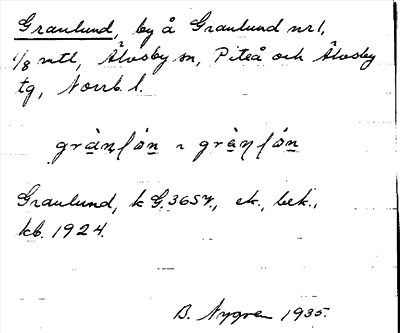 Granlund, by å Granlund nr 1,
1/8 mtl, Älvsby sn, Piteå och Älvsby
tg, Norrb. l.
Granlund, k G. 3657, ek., bek.,
kb. 1924.
B. Nygren 1935.